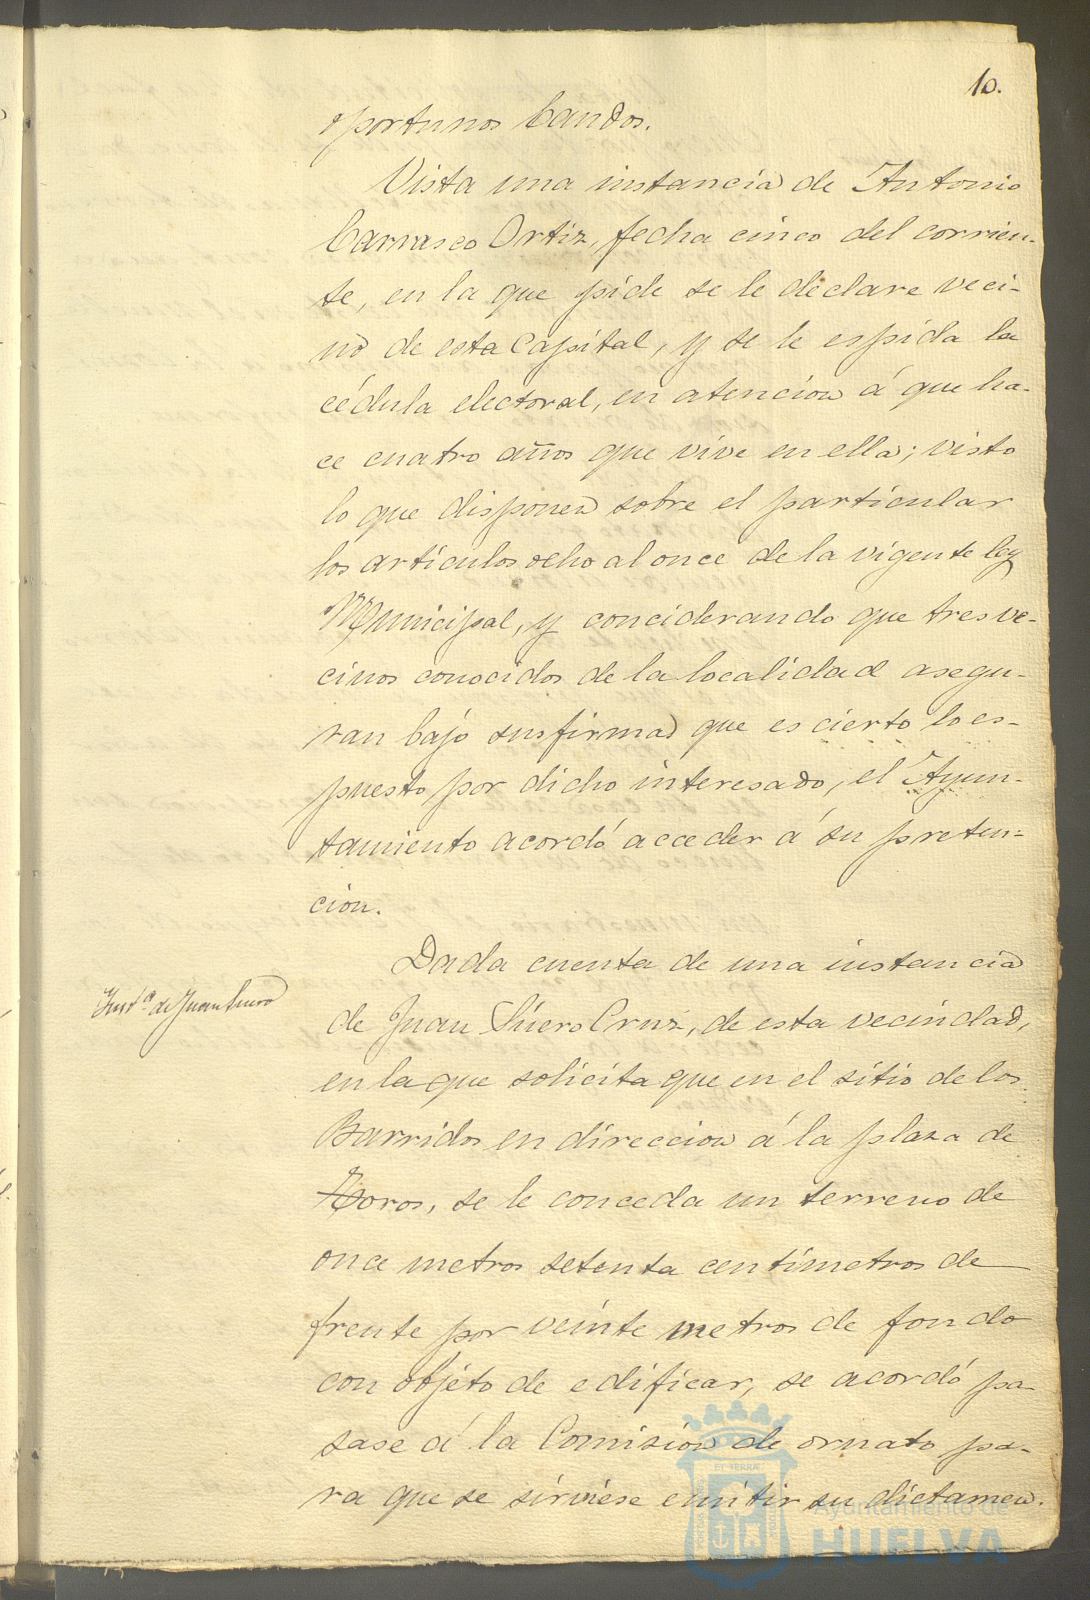 10.
oportunos bandos.
Vista una instancia de Antonio
Carrasco Ortiz, fecha cinco del corrien-
te, en la que pide se le declare veci-
no de esta Capital, y se le espida la
cédula electoral, en atencion á que ha-
ce cuatro años que vive en ella; visto
lo que disponen sobre el particular
los artículos ocho al once de la vigente ley
Municipal, y conciderando que tres ve-
cinos conocidos de la localidad asegu-
ran bajo su firma que es cierto lo es-
puesto por dicho interesado, el Ayun-
tamiento acordó acceder á su preten-
cion.
Inst.ª de Juan Suero
Dada cuenta de una instancia
de Juan Suero Cruz, de esta vecindad,
en la que solicita que en el sitio de los
Barridos en direccion á la plaza de
Toros, se le conceda un terreno de
once metros setenta centímetros de
frente por veinte metros de fondo
con objeto de edificar, se acordó pa-
sase á la Comision de ornato pa-
ra que se sirviese emitir su dictamen.
Ayuntamiento de
HUELVA